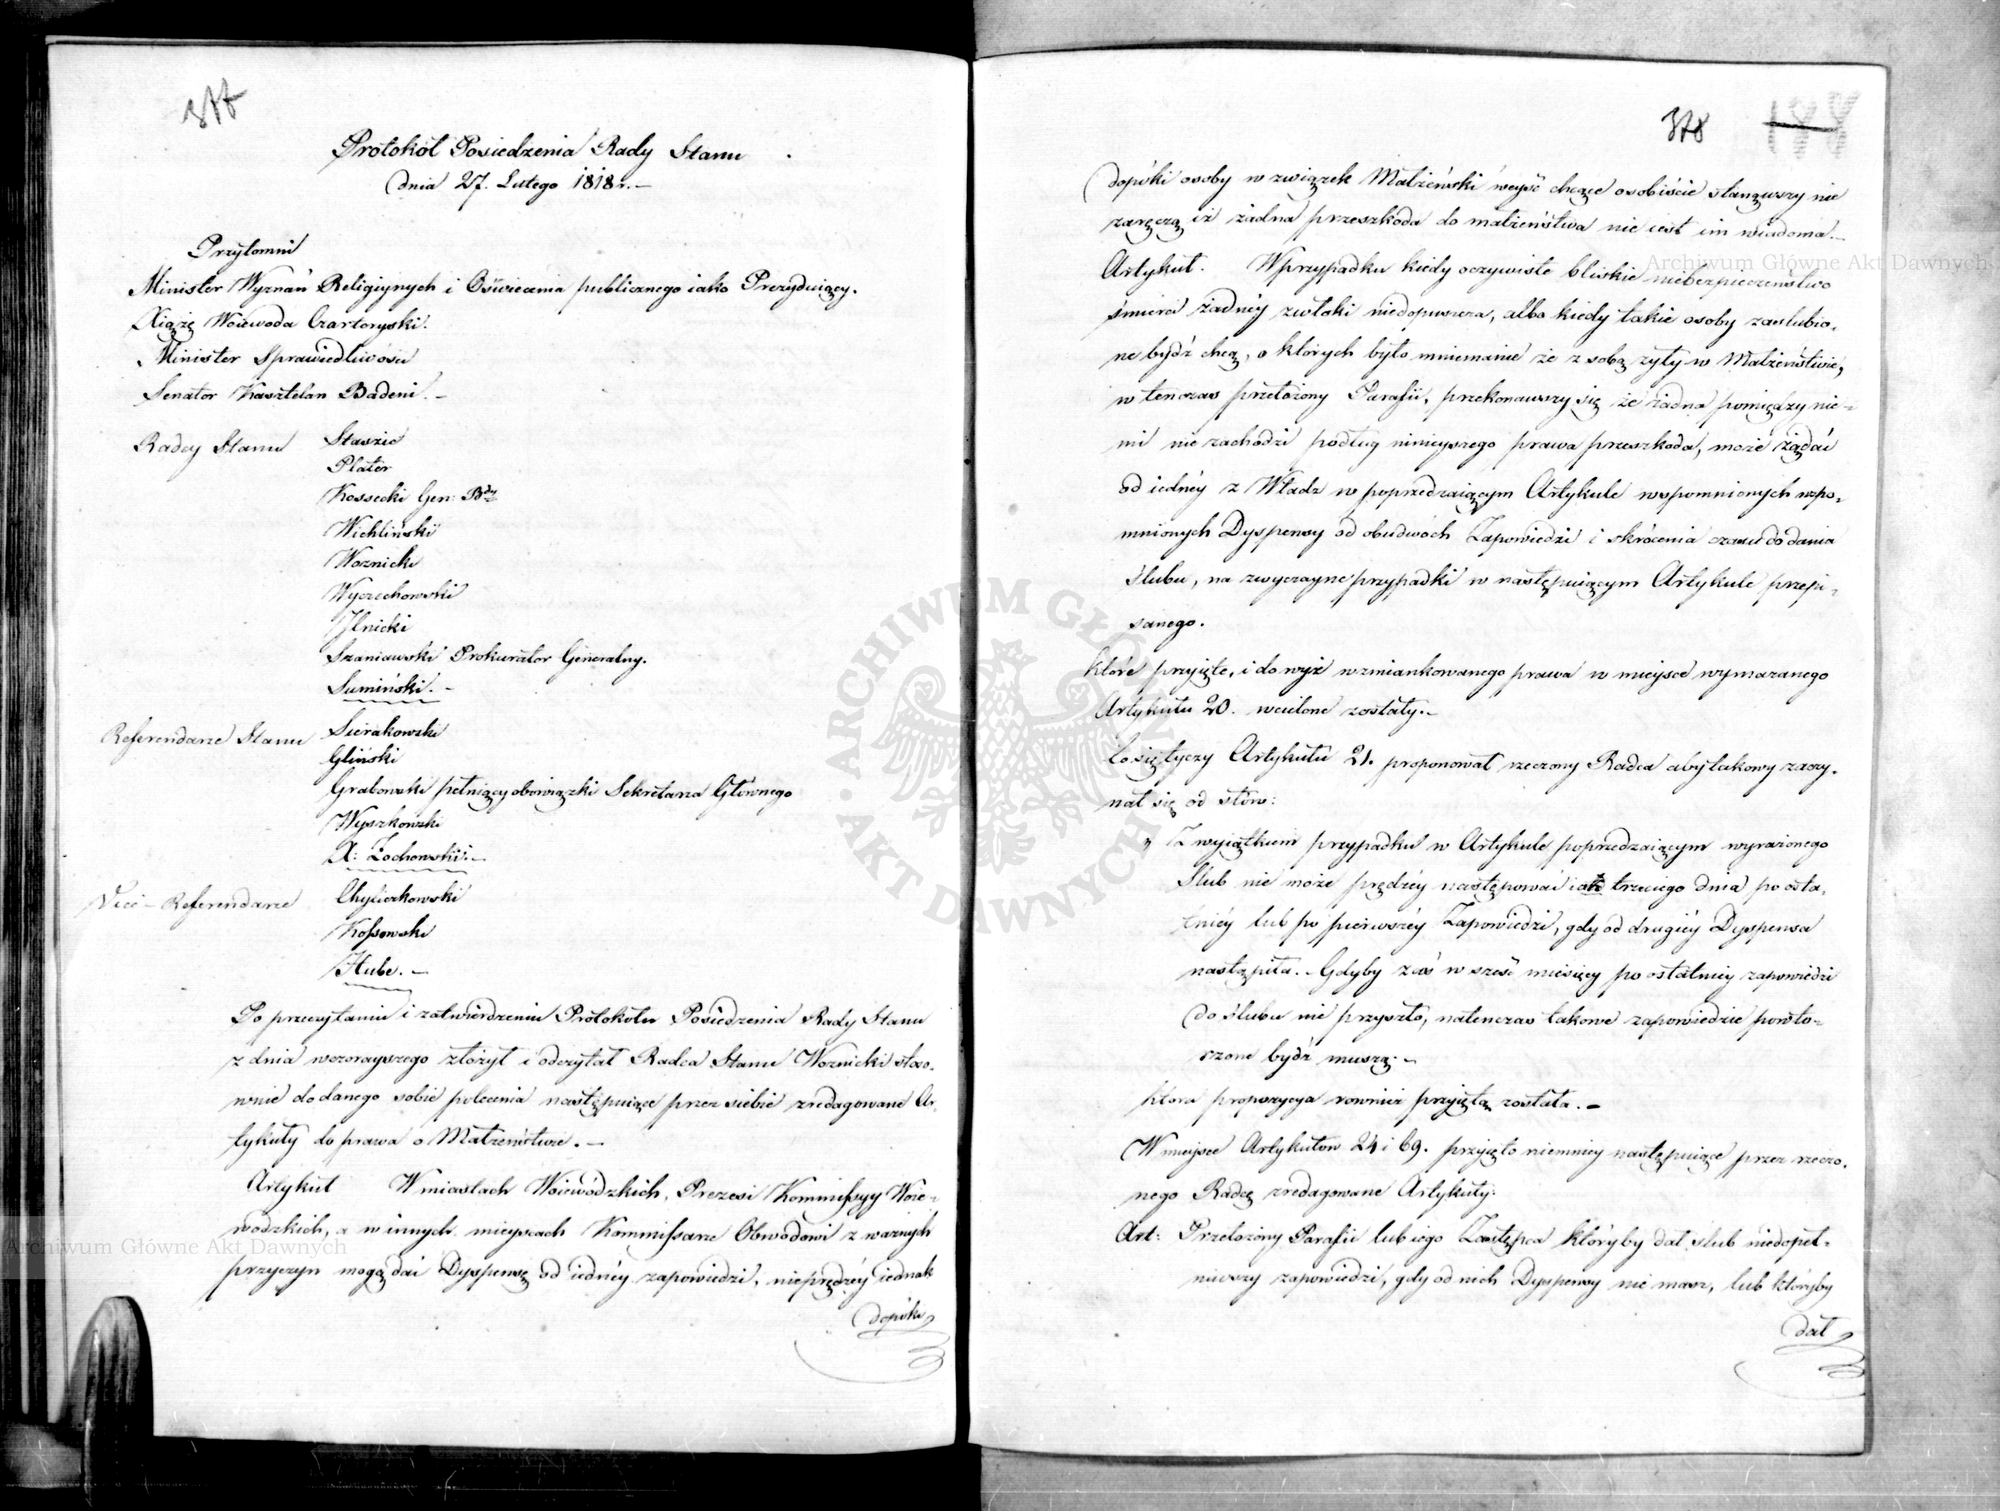 377
Protokół Posiedzenia Rady Stanu
dnia 27. Lutego 1818 r. —
Przytomni
Minister Wyznań Religiynych i Oświecenia publicznego iako Prezyduiący.
Xiążę Woiewoda Czartoryski.
Minister Sprawiedliwości
Senator Kasztelan Badeni. —
Radcy Stanu Staszic
Plater
Kossecki Gen: Bdy
Wichliński
Woznicki
Wyczechowski
Ilnicki
Szaniawski Prokurator Generalny.
Sumiński. —
Referendarze Stanu Sierakowski
Gliński
Grabowski pełniący obowiązki Sekretarza Głównego
Wyszkowski
X: Żochowski. —
Vice-Referendarze Chyliczkowski
Kossowski
Hube. —
Po przeczytaniu i zatwierdzeniu Protokołu Posiedzenia Rady Stanu
z dnia wczorayszego złożył i odczytał Radca Stanu Woznicki stoso-
wnie do danego sobie polecenia następuiące przez siebie zredagowane Ar-
tykuły do prawa o Małżeństwie. —
Artykuł W miastach Woiewódzkich, Prezesi Kommissyy Woie-
wodzkich, a w innych mieyscach Kommissarze Obwodowi z ważnych
przyczyn mogą dać Dyspensę od iednéy zapowiedzi, nieprędzéy iednak
dopóki
378 188
dopóki osoby w związek Małżeński weyść chcące osobiście stanąwszy nie
zaręczą iż żadna przeszkoda do małżeństwa nie iest im wiadoma. —
Artykuł. W przypadku kiedy oczywiste bliskie niebezpieczeństwo
śmierci żadnéy zwłoki niedopuszcza, albo kiedy takie osoby zaślubio-
ne bydź chcą, o których było mniemanie że z sobą żyły w Małżeństwie,
w tenczas przełożony Parafii, przekonawszy się że żadna pomiędzy nie-
mi nie zachodzi podług ninieyszego prawa przeszkoda, może żądać
od iednéy z Władz w poprzedzaiącym Artykule wspomnionych wspo-
mnionych Dyspensy od obudwóch Zapowiedzi i skrócenia czasu do dania
ślubu, na zwyczayne przypadki w następuiącym Artykule przepi-
sanego.
które przyięte, i do wyż wzmiankowanego prawa w mieysce wymazanego
Artykułu 20. wcielone zostały. —
Co się tyczy Artykułu 21. proponował rzeczony Radca aby takowy zaczy-
nał się od słów:
" Z wyiątkiem przypadku w Artykule poprzedzaiącym wyrażonego
Ślub nie może prędzéy następować iak trzeciego dnia po osta-
tniéy lub po pierwszéy Zapowiedzi, gdy od drugiéy Dyspensa
nastąpiła. — Gdyby zaś w sześć miesięcy po ostatniey zapowiedzi
do ślubu nie przyszło, natenczas takowe zapowiedzie powto-
rzone bydź muszą. —
która propozycya rownież przyiętą została. —
W mieysce Artykułów 24 i 69. przyięto niemniey następuiące przez rzeczo-
nego Radcę zredagowane Artykuły:
Art: Przełożony Parafii lub iego Zastępca któryby dał ślub niedopeł-
niwszy zapowiedzi, gdy od nich Dyspensy nie masz, lub któryby
dał
ARCHIWUM GŁÓWNE AKT DAWNYCH
Archiwum Główne Akt Dawnych
Archiwum Główne Akt Dawnych